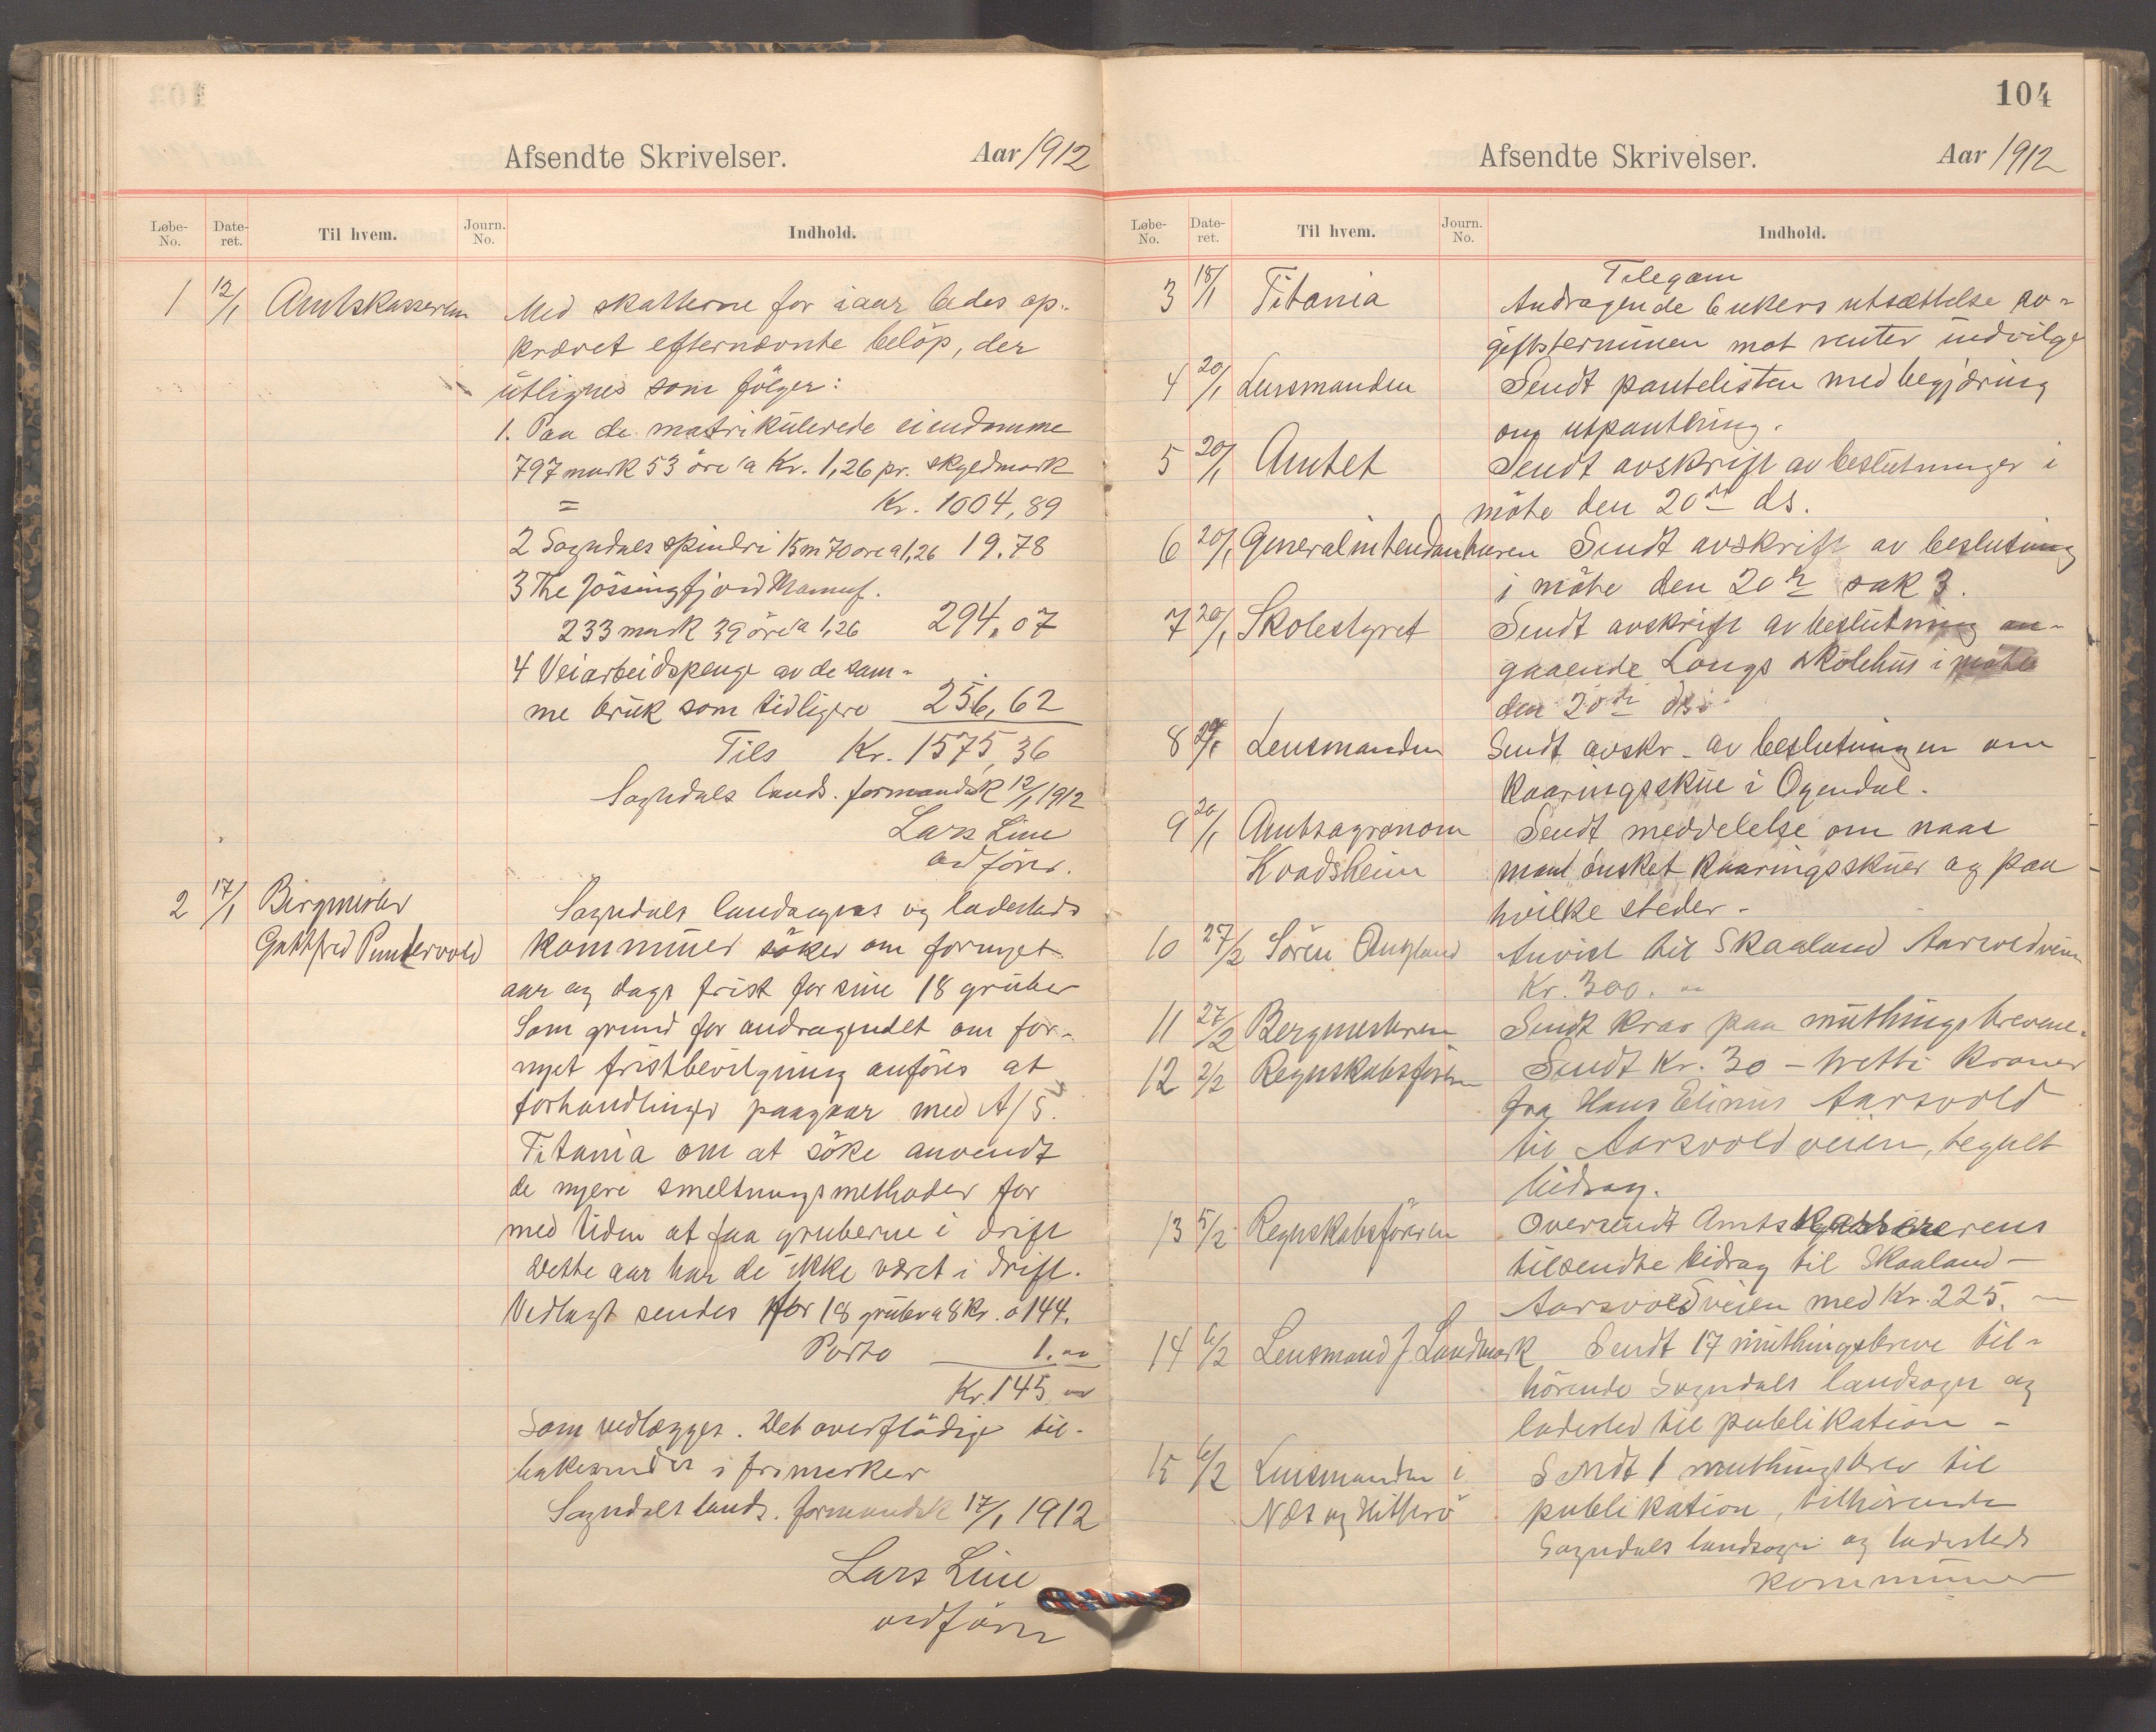 Afsendte Skrivelser. Aar 1912
Løbe-No. Date-ret. Til hvem. Journ. No. Indhold.
1 12/1 Amtskassereren Med skatterne for iaar bedes op-
krævet efternævnte beløp, der
utlignes som følger:
1. Paa de matrikulerede eiendomme
797 mark 53 öre a Kr. 1,26 pr. skyldmark
= Kr. 1004,89
2 Sogndals spinderi 15 m 70 öre a 1,26 19.78
3 The Jössingfjord Manuf.
233 mark 39 öre a 1,26 294.07
4 Veiarbeidspenge av de sam-
me bruk som tidligere 256,62
Tils Kr. 1575,36
Sogndals lands. formandsk 12/1 1912
Lars Liue
ordförer.
2 17/1 Bergmester Sogndals landsogns og ladesteds
Gottfred Puntervold kommuner söker om fornyet
aar og dags frist for sine 18 gruber
Som grund for andragendet om for-
nyet fristbevilgning anföres at
forhandlinger paagaar med A/S
Titania om at söke anvendt
de nyere smeltningsmethoder for
med tiden at faa gruberne i drift
Dette aar har de ikke været i drift.
Vedlagt sendes for 18 gruber a 8 Kr. 144.
Porto 1.00
Kr. 145 00
Som vedlægges. Det overflödige til-
bakesendes i frimerker
Sogndals lands. formandsk 17/1 1912
Lars Liue
ordförer
104
Afsendte Skrivelser. Aar 1912
Løbe-No. Date-ret. Til hvem. Journ. No. Indhold.
Telegam
3 18/1 Titania Andragende 6 ukers utsættelse av-
giftsterminen mot renter indvilge
4 20/1 Lensmanden Sendt pantelisten med begjæring
om utpantning.
5 20/1 Amtet Sendt avskrift av beslutninger i
möte den 20de ds.
6 20/1 Generalintendanturen Sendt avskrift av beslutning
i möte den 20de sak 3.
7 20/1 Skolestyret Sendt avskrift av beslutning an-
gaaende Longs skolehus i möte
den 20de ds.
8 20/1 Lensmanden Sendt avskr. av beslutningen om
kaaringsskue i Ogendal.
9 20/1 Amtsagronom Sendt meddelelse om naar
Kvadsheim man önsket kaaringsskuer og paa
hvilke steder.
10 27/2 Sören Omland Anvist til Skaaland Aarsvoldveien
Kr. 300.00
11 27/2 Bergmesteren Sendt krav paa muthingsbrevene.
12 2/2 Regnskabsföreren Sendt Kr. 30 - tretti kroner
fra Hans Elinus Aarsvold
til Aarsvoldveien, tegnet
bidrag.
13 5/2 Regnskabsföreren Oversendt Amtskassererens
tilsendte bidrag til Skaaland-
Aarsvoldveien med Kr. 225.
14 6/2 Lensmand J. Landmark Sendt 17 muthingsbreve til-
hörende Sogndals landsogn og
ladested til publikation -
15 6/2 Lensmanden i Sendt 1 muthingsbrev til
Nes og Hitterö publikation, tilhörende
Sogndals landsogn og ladesteds
kommuner